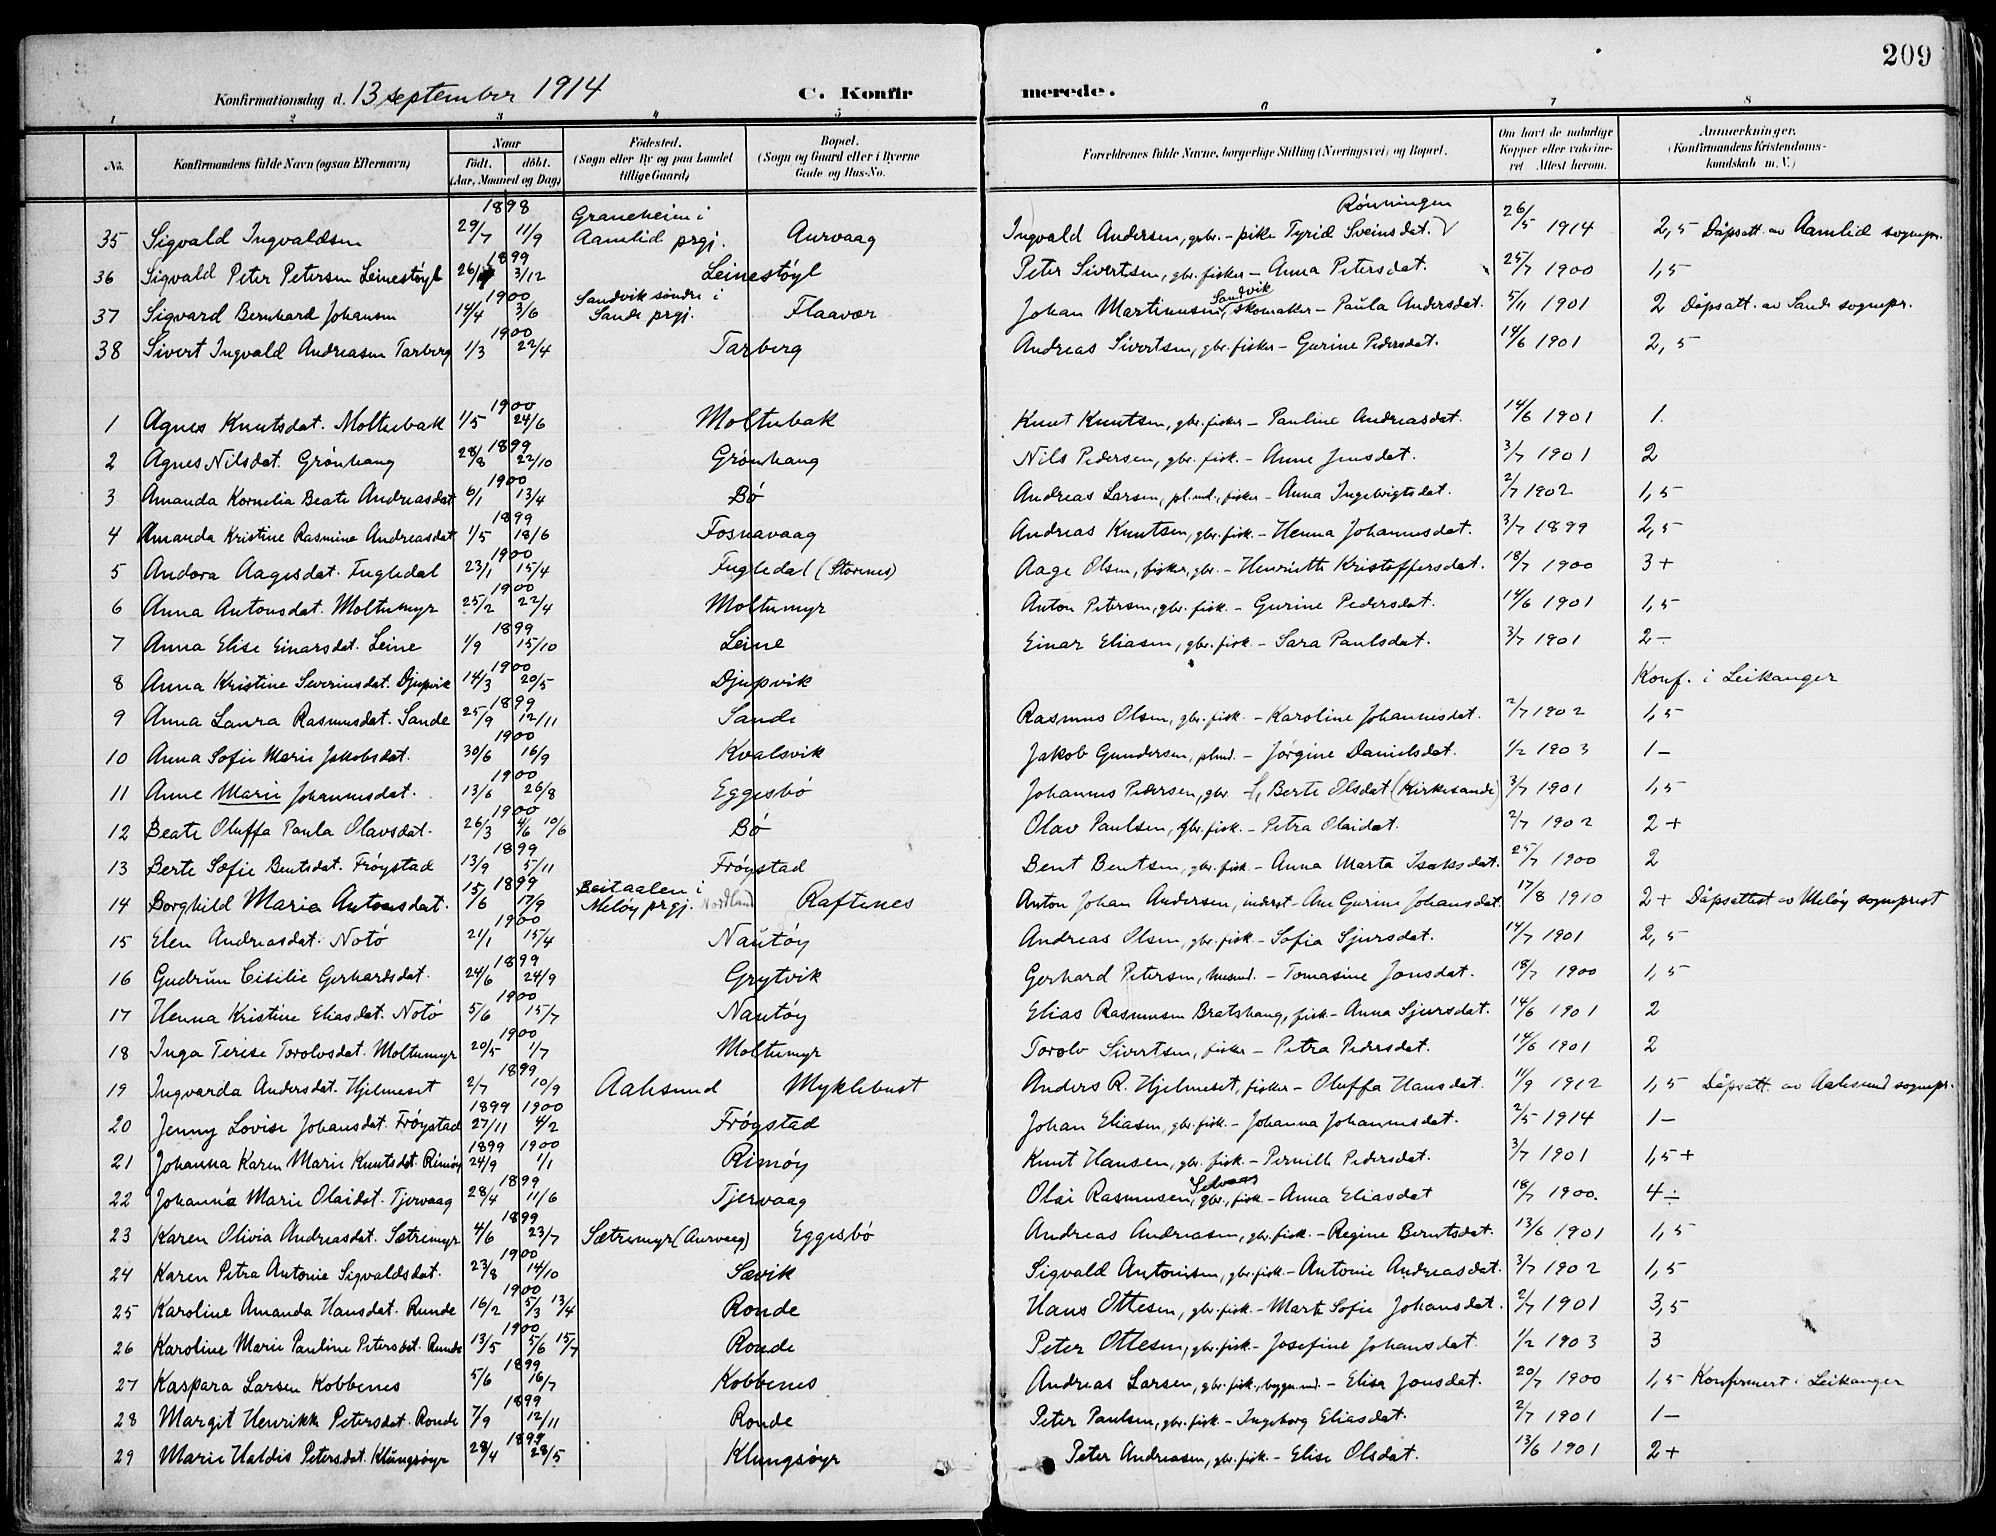 209
Konfirmationsdag d. 13 september 1914 C. Konfirmerede.
1 2 3 4 5 6 7 8
No. Konfirmandens fulde Navn (ogsaa Efternavn) Naar født. døbt. (Aar, Maaned og Dag) Fødested. (Sogn eller By og paa Landet tillige Gaard) Bopæl. (Sogn og Gaard eller i Byerne Gade og Hus-No. Forældrenes fulde Navne, borgerlige Stilling (Næringsvei) og Bopæl. Om havt de naturlige Kopper eller vaccineret Attest herom. Anmærkninger. (Konfirmandens Kristendomskundskab m. V.)
1898 Graneheim i Rønningen
35 Sigvald Ingvaldsen 29/7 11/9 Aamlid prgj. Aurvaag Ingvald Andersen, gbr. - pike Tyrid Sveinsdat. 26/5 1914 2,5 Dåpsatt. av Aamlid sognepr.
1899
36 Sigvald Peter Petersen Leinestøyl 26/7 3/12 Leinestøyl Peter Sivertsen, gbr. fisker - Anna Petersdat. 25/7 1900 1,5
1900 Sandvik søndre i Sandvik
37 Sigvard Bernhard Johansen 14/4 3/6 Sande prgj. Flaavær Johan Martinusen, skomaker - Paula Andersdat. 5/11 1901 2 Dåpsatt. av Sande sognepr.
1900
38 Sivert Ingvald Andreasen Tarberg 1/3 22/4 Tarberg Andreas Sivertsen, gbr. fisker - Gurine Pedersdat. 14/6 1901 2,5
1900
1 Agnes Knutsdat. Moltubak 1/5 24/6 Moltubak Knut Knutsen, gbr. fisker - Pauline Andreasdat. 14/6 1901 1.
1899
2 Agnes Nilsdat. Grønhaug 28/8 22/10 Grønhaug Nils Pedersen, gbr. fisk. - Anne Jensdat. 3/7 1901 2
1900
3 Amanda Kornelia Beate Andreasdat 6/1 13/4 Bø Andreas Larsen, pl.md., fisker - Anna Ingebrigtsdat. 2/7 1902 1,5
1899
4 Amanda Kristine Rasmine Andreasdat 1/5 18/6 Fosnavaag Andreas Knutsen, gbr. fisk. - Henna Johannesdat. 3/7 1899 2,5
1900
5 Andora Aagesdat. Fugledal 23/1 15/4 Fugledal (Storenes) Aage Olsen, fisker, gbr. - Henriette Kristoffersdat. 18/7 1900 3+
1900
6 Anna Antonsdat. Moltumyr 25/2 22/4 Moltumyr Anton Petersen, gbr. fisk. - Gurine Pedersdat. 14/6 1901 1,5
1899
7 Anna Elise Einarsdat. Leine 1/9 15/10 Leine Einar Eliasen, gbr. fisk. - Sara Paulsdat. 3/7 1901 2-
1900
8 Anna Kristine Severinsdat. Djupvik 14/3 20/5 Djupvik Konf. i Leikanger
1899
9 Anna Laura Rasmusdat. Sande 25/9 12/11 Sande Rasmus Olsen, gbr. fisk. - Karoline Johannesdat. 2/7 1902 1,5
1900
10 Anna Sofie Marie Jakobsdat. 30/6 16/9 Kvalsvik Jakob Gundersen, plmd. - Jørgine Danielsdat. 1/2 1903 1-
1900
11 Anne Marie Johannesdat. 13/6 26/8 Eggesbø Johannes Pedersen, gbr - f, Berte Olsdat (Kirkesande) 3/7 1901 1,5
1900
12 Beate Oluffa Paula Olavsdat. 26/3 4/6 10/6 Bø Olav Paulsen, gbr. fisk. - Petra Olaidat. 2/7 1902 2+
1899
13 Berte Sofie Bentsdat. Frøystad 13/9 5/11 Frøystad Bent Bentsen, gbr. fisk - Anna Marta Isaksdat. 25/7 1900 2
1899 Beitaalen i
14 Borghild Marie Antonsdat. 15/6 17/9 Meløy prgj. Nordland Raftenes Anton Johan Andersen, inderst - Ane Gurine Johansdat. 17/8 1910 2+ Dåpsattest av Meløy sogneprest
1900
15 Elen Andreasdat. Notø 21/1 15/4 Nautøy Andreas Olsen, gbr. fisk - Sofia Sjursdat. 14/7 1901 2,5
1899
16 Gudrun Cisilie Gerhardsdat. 24/6 24/9 Grytvik Gerhard Petersen, husmd. - Tomasine Jonsdat. 18/7 1900 1,5
1900
17 Henna Kristine Eliasdat. Notø 5/6 15/7 Nautøy Elias Rasmusen Bratshaug, fisk - Anna Sjursdat. 14/6 1901 2
1900
18 Inga Terese Torolvsdat. Moltumyr 20/5 1/7 Moltumyr Torolv Sivertsen, fisker - Petra Pedersdat. 14/6 1901 2
1899
19 Ingvarda Andersdat. Hjelmeset 2/7 10/9 Aalesund Myklebust Anders R. Hjelmeset, fisker - Oluffa Hansdat. 11/9 1912 1,5 Dåpsatt. av Aalesund sognepr.
1899 1900
20 Jenny Lovise Johansdat. Frøystad 27/11 4/2 Frøystad Johan Eliasen, gbr. fisk. - Johanna Johannesdat. 2/5 1914 1-
1899 1900
21 Johanna Karen Marie Knutsdat Rimøy 24/9 1/1 Rimøy Knut Hansen, gbr. fisk. - Pernille Pedersdat. 3/7 1901 1,5+
1899 Selvaag
22 Johanna Marie Olaidat. Tjervaag 28/4 11/6 Tjervaag Olai Rasmusen, gbr. fisk. - Anna Eliasdat 18/7 1900. 4-
1899
23 Karen Olivia Andreasdat. Sætremyr 4/6 23/7 Sætremyr (Aurvaag) Eggesbø Andreas Andreasen, gbr. fisk. - Regine Berntsdat. 13/6 1901 1,5
1900
24 Karen Petra Antonie Sigvaldsdat. 23/8 14/10 Sævik Sigvald Antonisen, gbr. fisk. - Antonie Andreasdat. 3/7 1902 1,5
1900
25 Karoline Amanda Hansdat. Runde 16/2 5/3 13/4 Ronde Hans Ottesen, gbr. fisk. - Marte Sofie Johansdat. 2/7 1901 3,5
1900
26 Karoline Marie Pauline Petersdat. Runde 13/5 5/6 15/7 Ronde Peter Ottesen, gbr. fisk. - Josefine Johansdat. 1/2 1903 3
1899
27 Kaspara Larsen Kobbenes 5/6 16/7 Kobbenes Andreas Larsen, gbr. fisk., bygsmd. - Elise Jonsdat. 20/7 1900 1,5 Konfirmert i Leikanger
1899
28 Margit Henrikke Petersdat. Ronde 7/9 12/11 Ronde Peter Paulsen, gbr. fisk - Ingeborg Eliasdat. 2/7 1901 1-
1899
29 Marie Haldis Petersdat. Klungsøyr 23/4 28/5 Klungsøyr Peter Andreasen, gbr. fisk. - Elise Olsdat. 13/6 1901 2+